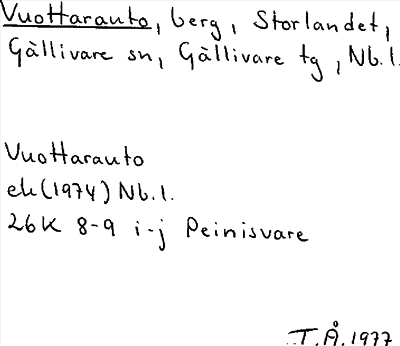 Vuottarauto, berg, Storlandet,
Gällivare sn, Gällivare tg, Nb.l.
Vuottarauto
ek (1974) Nb.l.
26K 8-9 i-j Peinisvare
T.Å. 1977